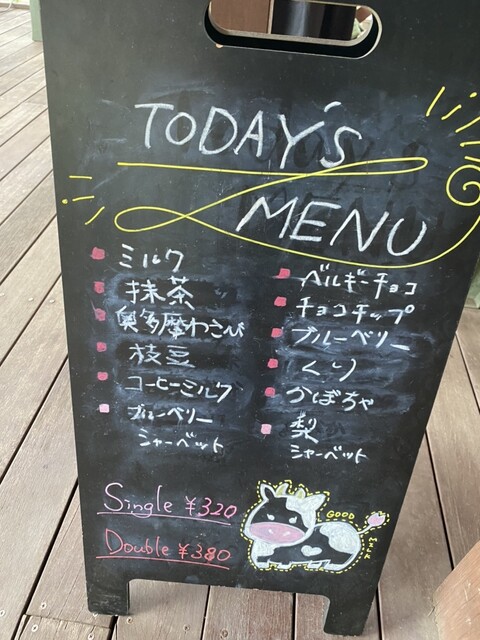 TODAY'S
MENU
ミルク
抹茶
奥多摩わさび
枝豆
コーヒーミルク
ブルーベリー
シャーベット
ベルギーチョコ
チョコチップ
ブルーベリー
くり
かぼちゃ
梨
シャーベット
Single ¥320
Double ¥380
GOOD
MILK